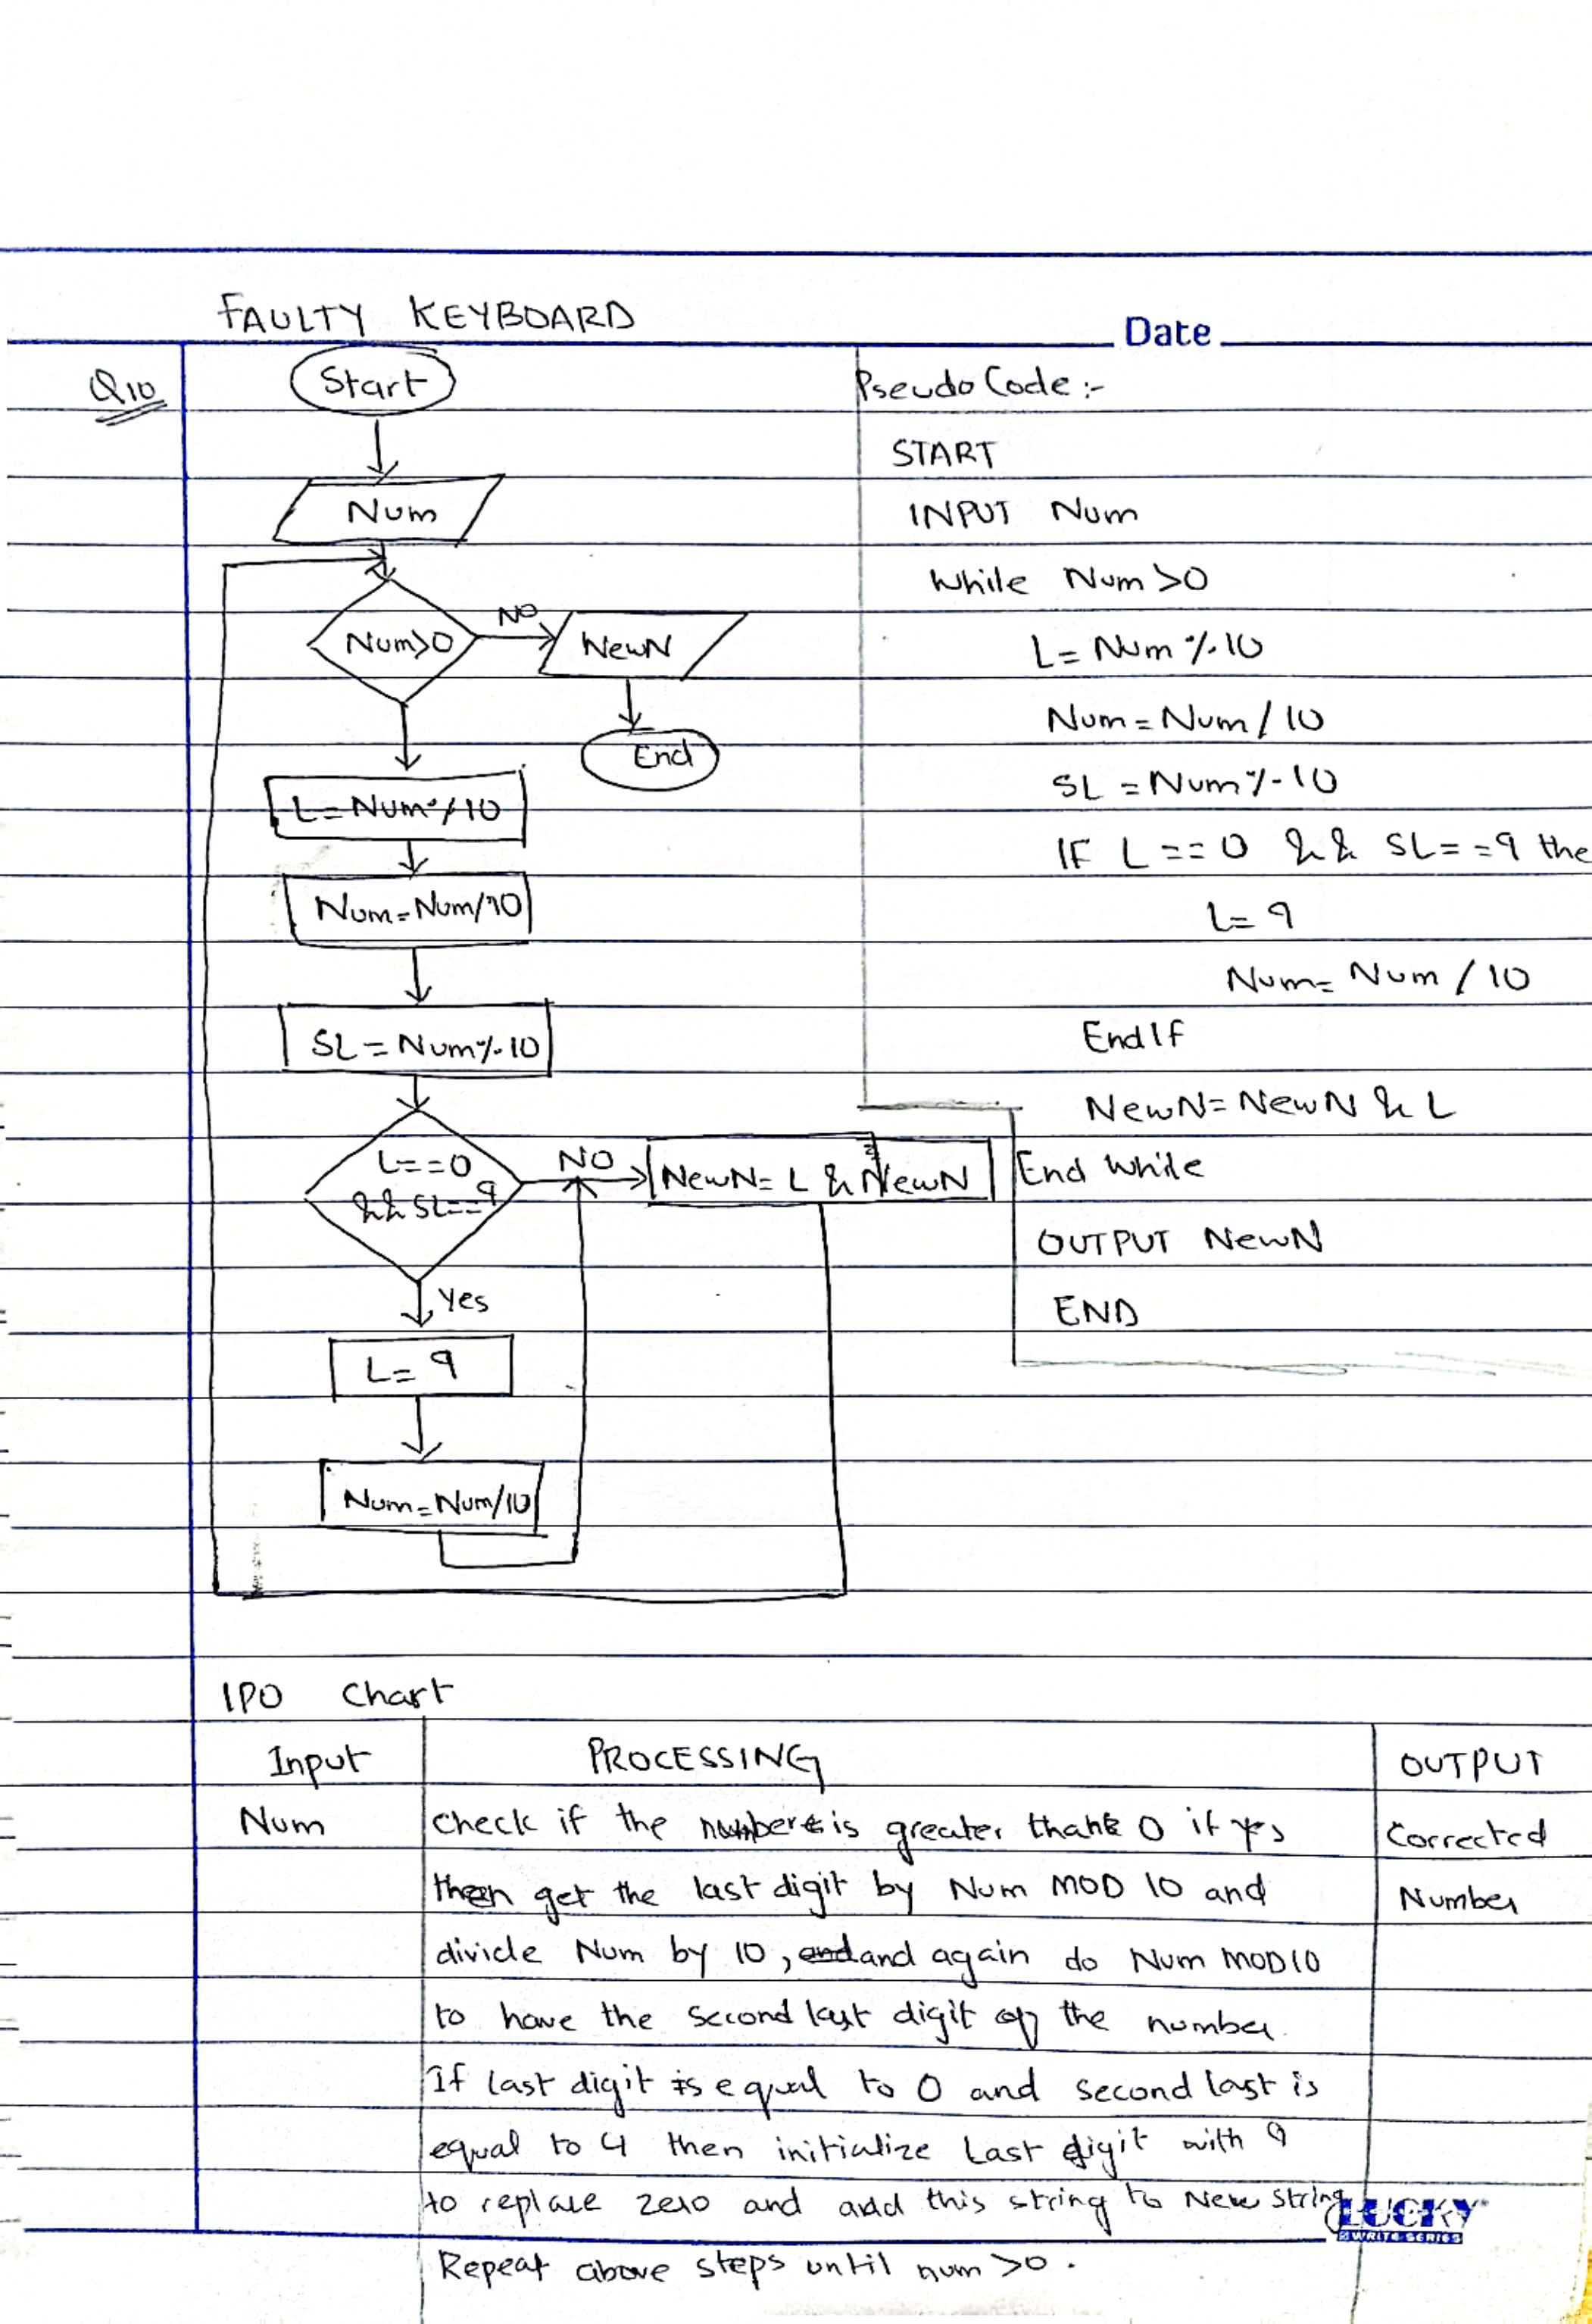 FAULTY KEYBOARD
Date
Q10
Start
Num
Num>0
NO
NewN
End
L=Num%10
Num=Num/10
SL=Num%10
L==0
&& SL==9
NO
NewN= L & NewN
Yes
L= 9
Num=Num/10
Pseudo Code :-
START
INPUT Num
While Num>0
L=Num%10
Num=Num/10
SL=Num%10
IF L==0 && SL==9 the
L=9
Num=Num/10
EndIf
NewN=NewN & L
End While
OUTPUT NewN
END
IPO Chart
Input PROCESSING OUTPUT
Num check if the number is greater than 0 if yes Corrected
then get the last digit by Num MOD 10 and Number
divide Num by 10, and again do Num MOD10
to have the second last digit of the number.
If last digit is equal to 0 and second last is
equal to 4 then initialize Last digit with 9
to replace zero and add this string to New string
LUCKY
WRITE SERIES
Repeat above steps until num >0.